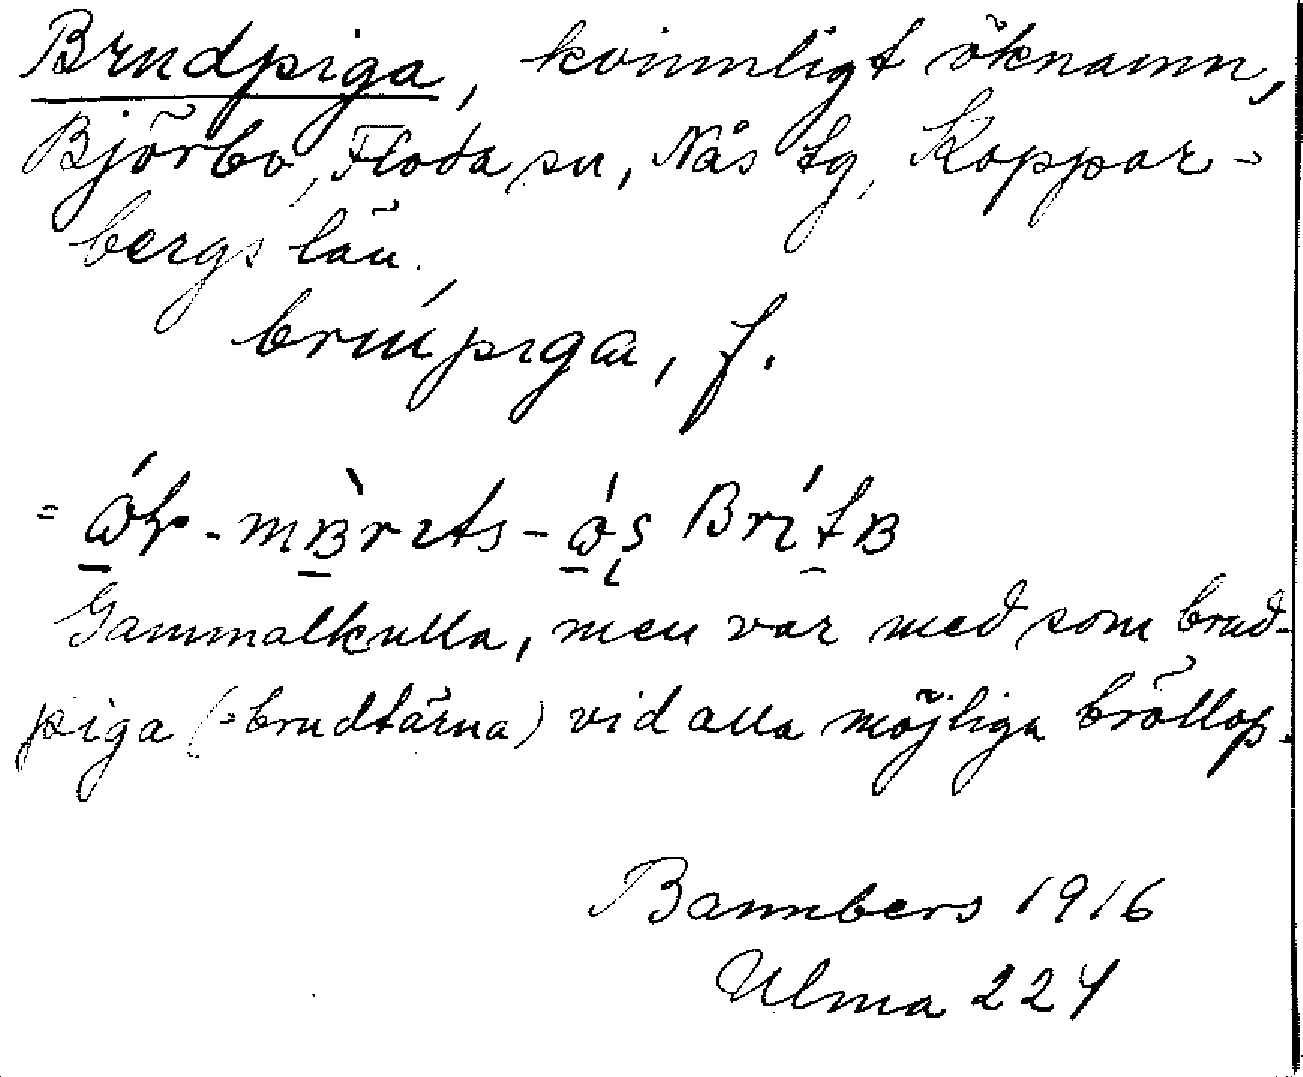 Brudpiga, kvinnligt öknamn,
Björbo, Floda sn, Nås tg, Koppar-
bergs län.
brúpiga, f.
Gammalkulla, men var med som brud-
piga (=brudtärna) vid alla möjliga bröllop.
Bannbers 1916
Ulma 224